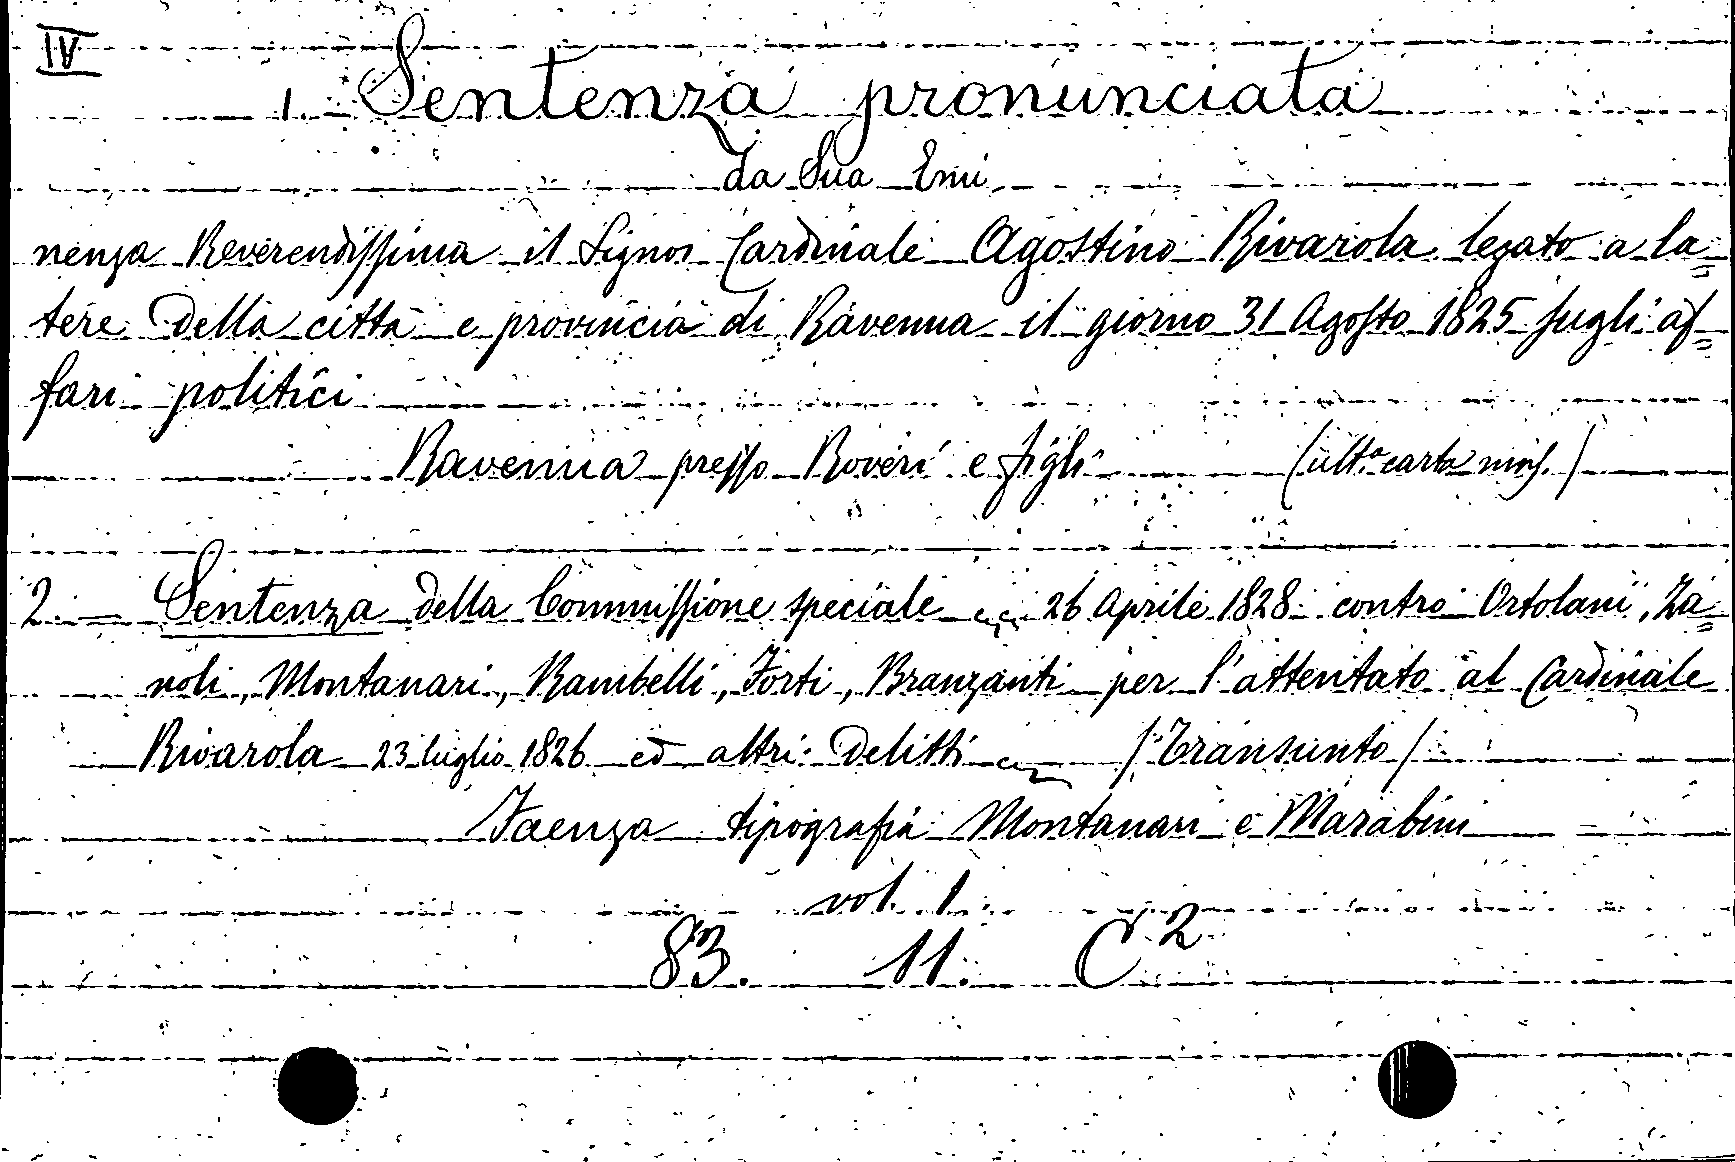 IV
1. Sentenza pronunciata
da Sua Emi
nenza Reverendissima il Signor Cardinale Agostino Rivarola legato a la=
tere della città e provincia di Ravenna il giorno 31 Agosto 1825 sugli af=
fari politici
Ravenna presso Roveri e figli (ult.a carta
2. — Sentenza della Commissione speciale 26 Aprile 1828 contro Ortolani, Za=
noli, Montanari, Rambelli, Forti, Branzanti per l'attentato al Cardinale
Rivarola 23 luglio 1826 ed altri delitti /Transunto/
Faenza tipografia Montanari e Marabini
vol. 1.
83. 11. C 2